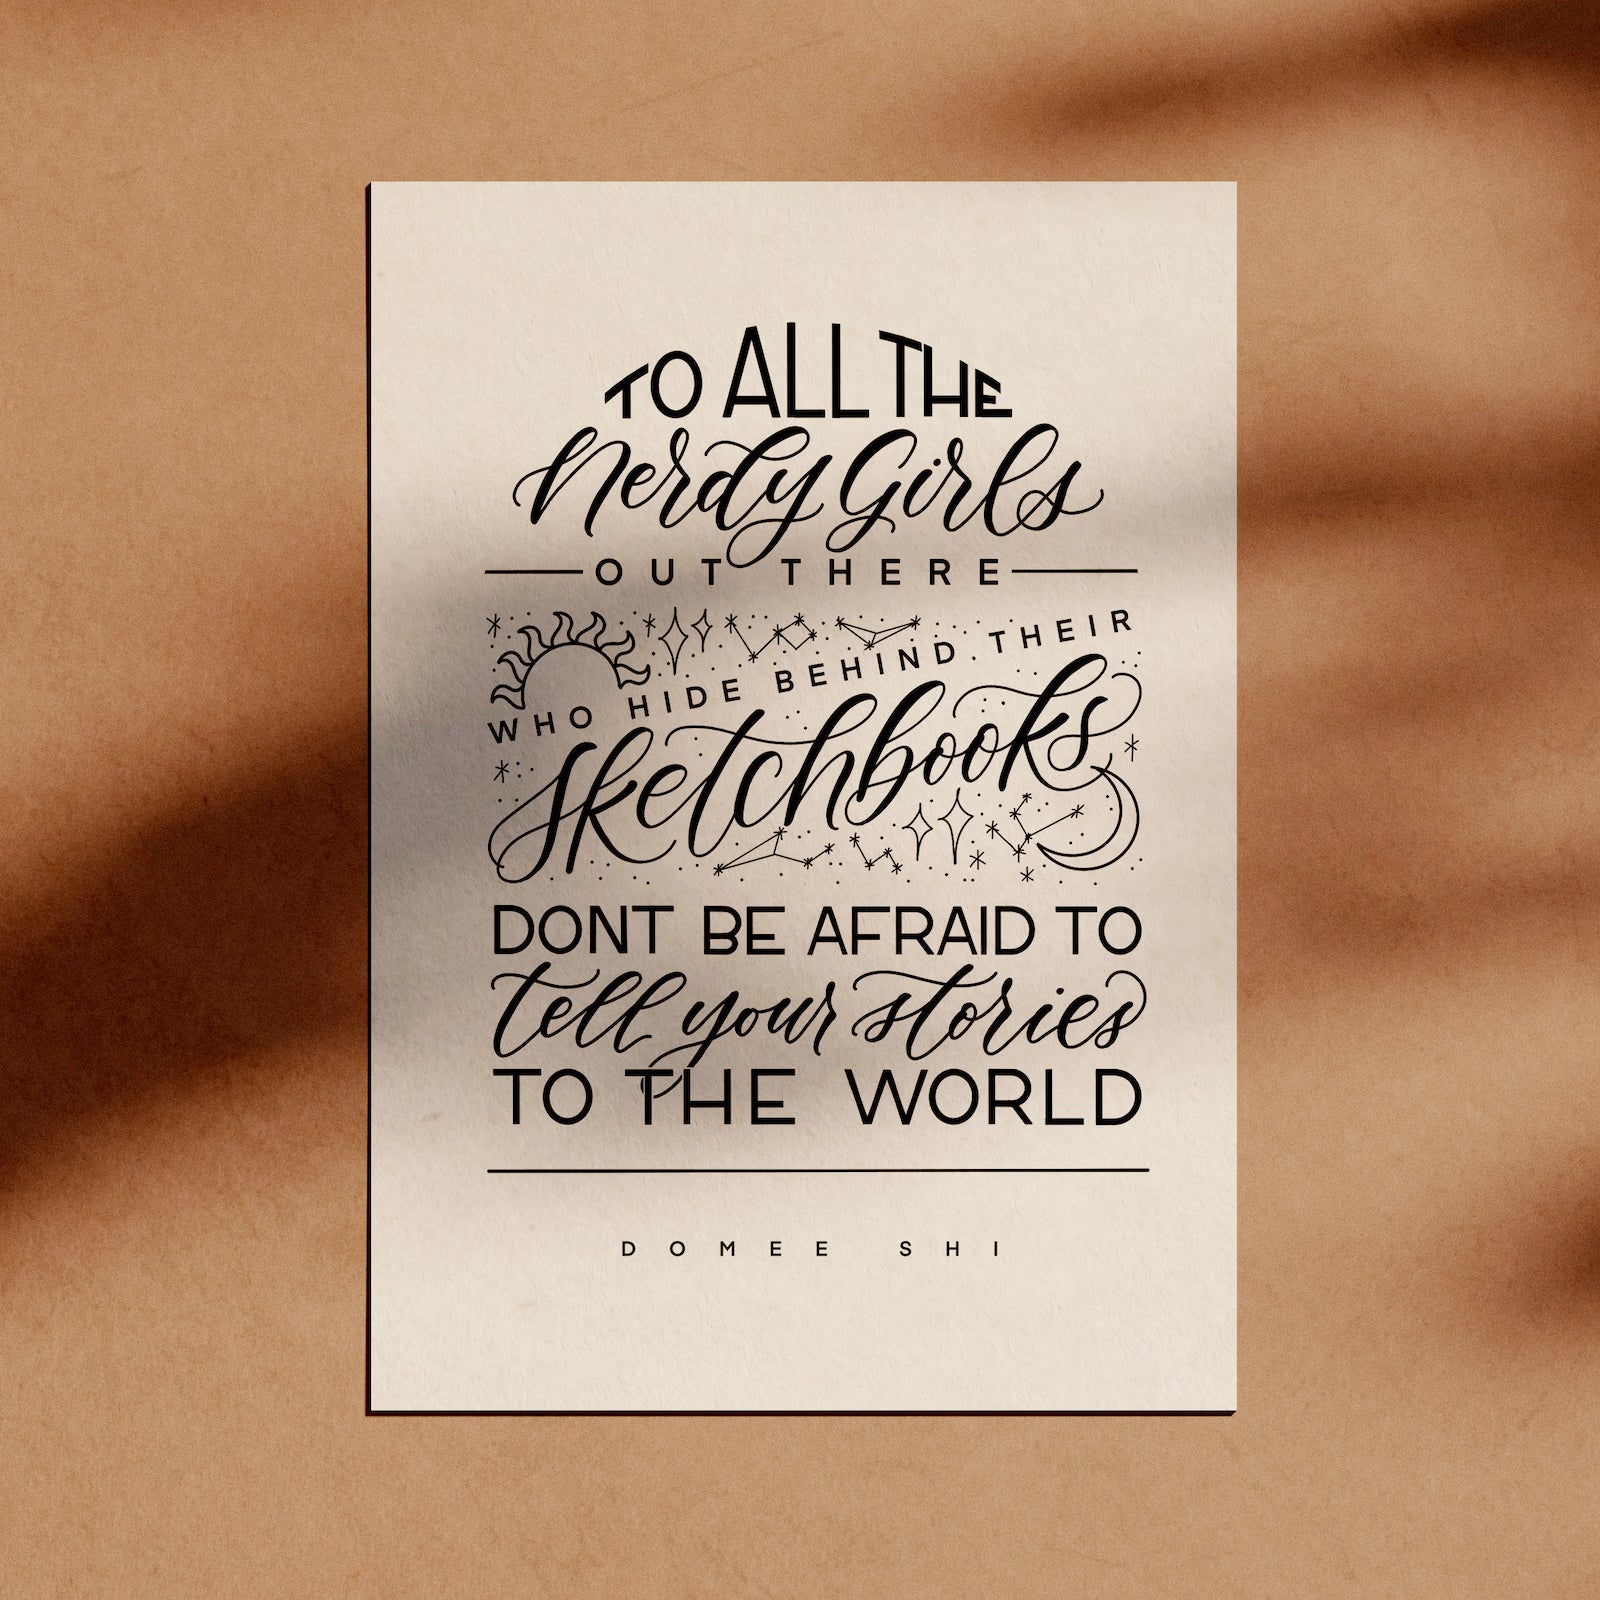 TO ALL THE
Nerdy Girls
OUT THERE
WHO HIDE BEHIND THEIR
sketchbooks
DONT BE AFRAID TO
tell your stories
TO THE WORLD
DOMEE SHI